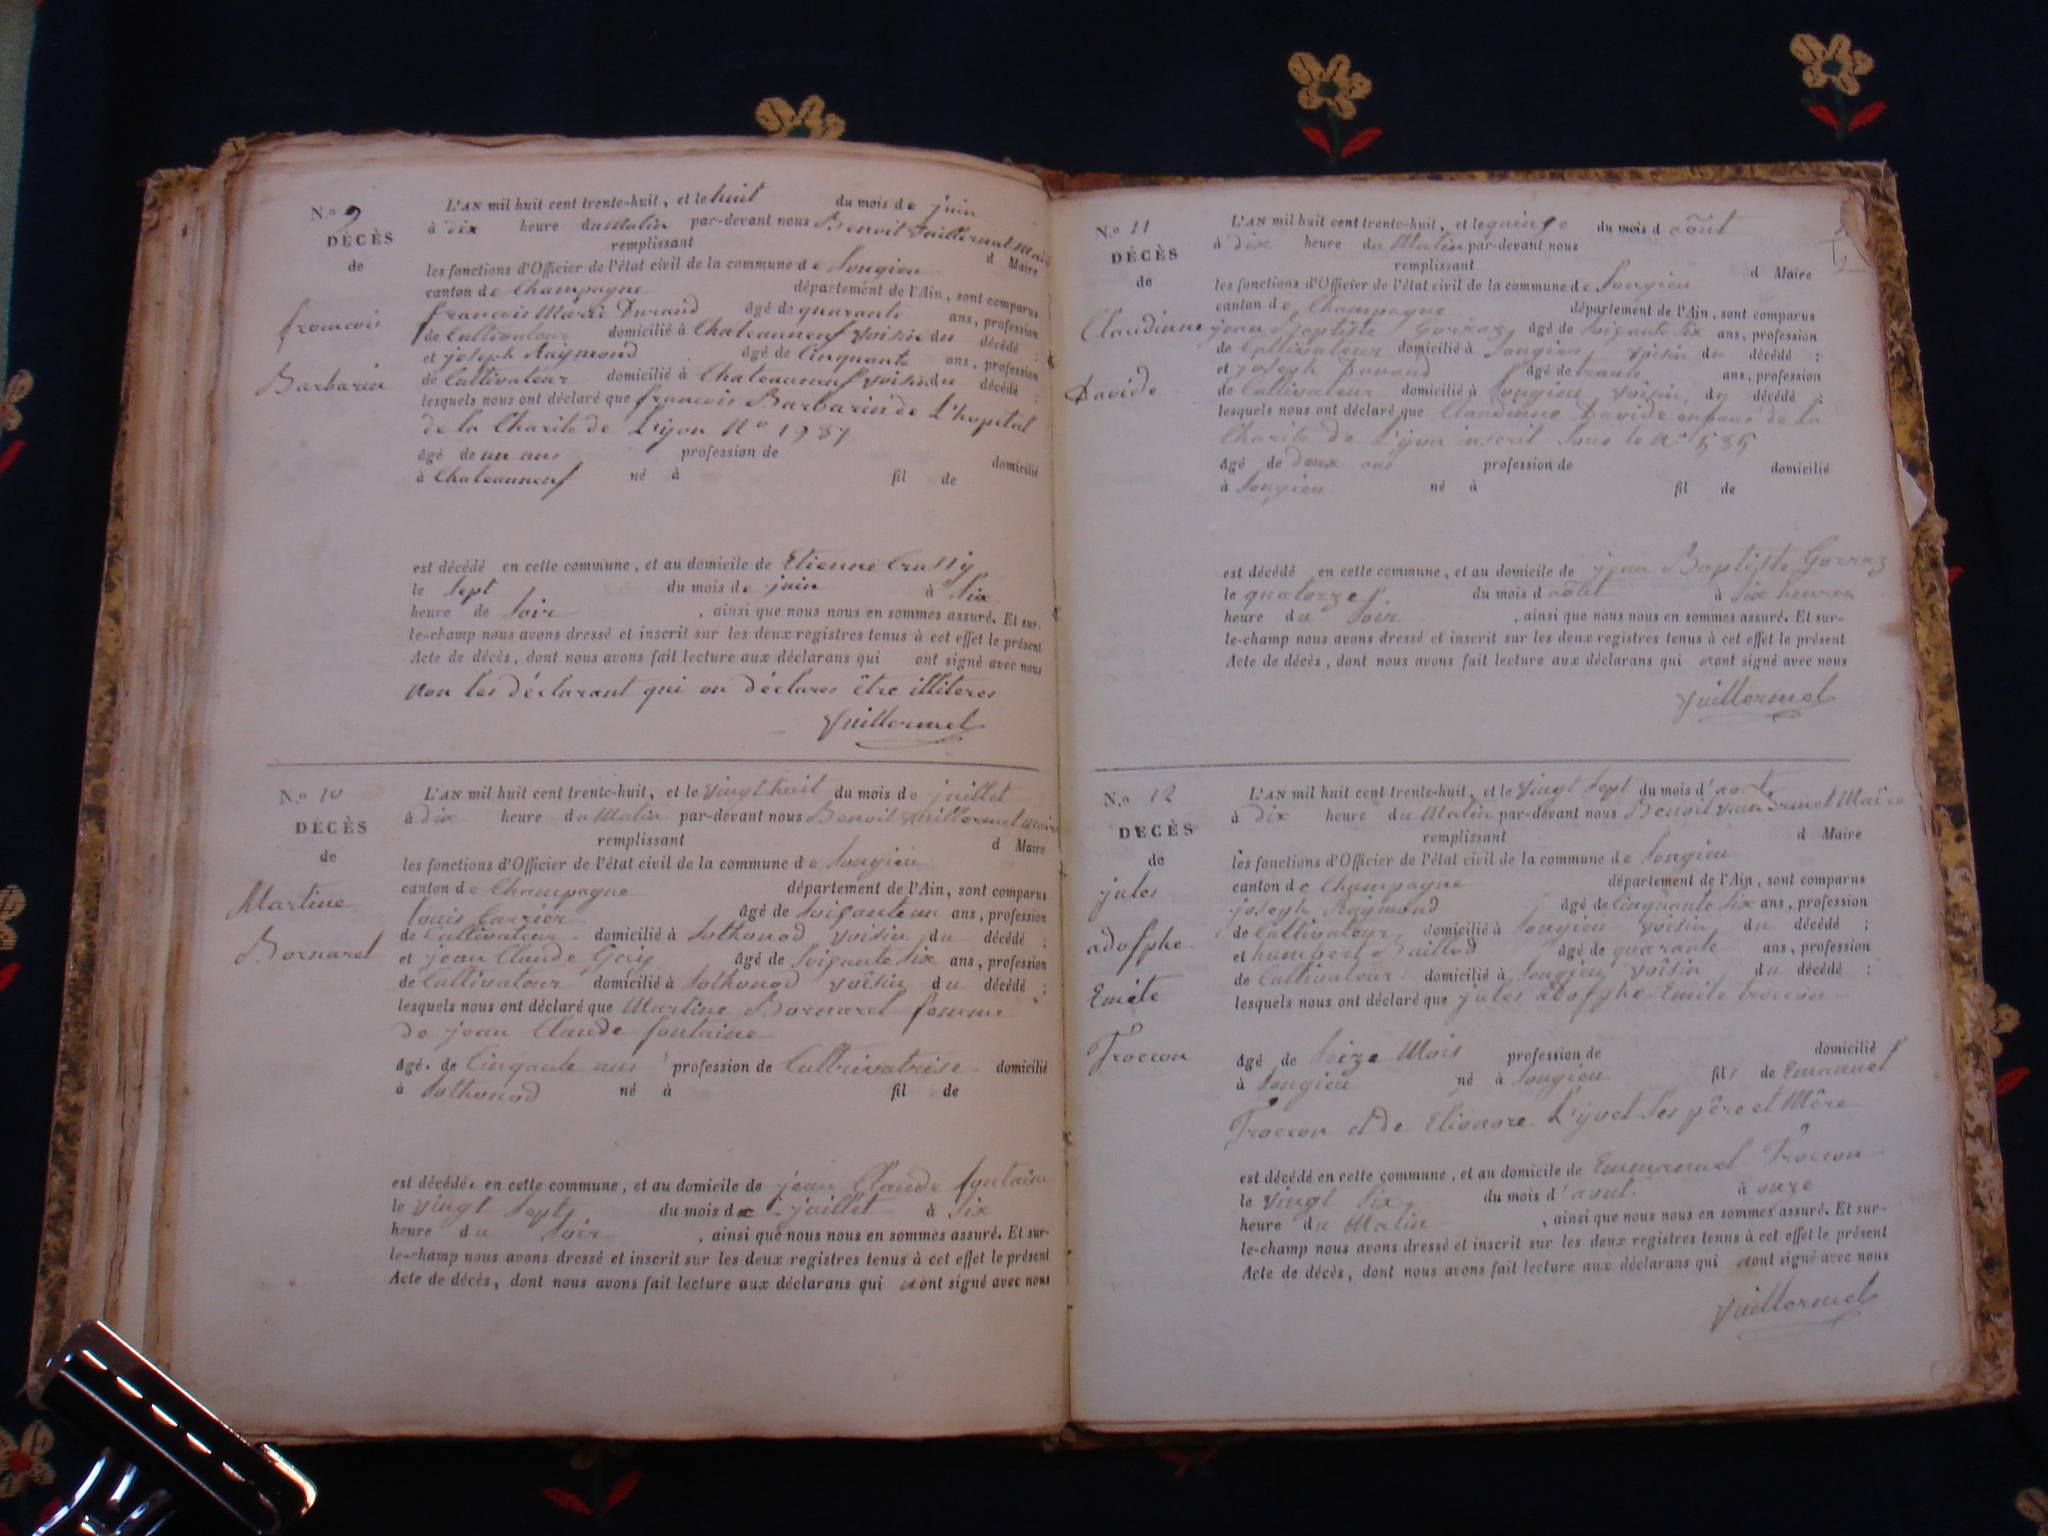 N.o 9
DÉCÈS
de
francois
Barbarin
L'AN mil huit cent trente-huit, et le huit du mois de juin
à dix heure du Matin par-devant nous Benoit Vuillermet Maire
remplissant d Maire
les fonctions d'Officier de l'état civil de la commune de Songieu
canton de Champagne département de l'Ain, sont comparus
francois Marie Durand âgé de quarante ans, profession
de Cultivateur domicilié à Chateauneuf voisin du décédé ;
et joseph Raymond âgé de Cinquante ans, profession
de Cultivateur domicilié à Chateauneuf voisin du décédé ;
lesquels nous ont déclaré que francois Barbarin de L'hopital
de la Charite de L'yon No 1987
âgé de un ans profession de domicilié
à Chateauneuf né à fil de
est décédé en cette commune, et au domicile de Etienne Crussy
le Sept du mois de juin à Six
heure de Soir , ainsi que nous nous en sommes assuré. Et sur-
le-champ nous avons dressé et inscrit sur les deux registres tenus à cet effet le présent
Acte de décès, dont nous avons fait lecture aux déclarans qui ont signé avec nous
non les déclarant qui on déclares être illiteres
Vuillermet
N.o 10
DÉCÈS
de
Martine
Bornaret
L'AN mil huit cent trente-huit, et le vingt huit du mois de juillet
à dix heure du Matin par-devant nous Benoit Vuillermet Maire
remplissant d Maire
les fonctions d'Officier de l'état civil de la commune de Songieu
canton de Champagne département de l'Ain, sont comparus
Louis Carrier âgé de Soixante un ans, profession
de Cultivateur domicilié à Sothonod voisin du décédé ;
et jean Claude Gery âgé de Soixante Six ans, profession
de Cultivateur domicilié à Sothonod voisin du décédé ;
lesquels nous ont déclaré que Martine Bornaret femme
de jean Claude fontaine
âgé de Cinqante ans profession de Cultrivatrise domicilié
à Sothonod né à fil de
est décédée en cette commune, et au domicile de jean Claude fontaine
le vingt Sept du mois de juillet à Six
heure du Soir , ainsi que nous nous en sommes assuré. Et sur-
le-champ nous avons dressé et inscrit sur les deux registres tenus à cet effet le présent
Acte de décès, dont nous avons fait lecture aux déclarans qui nont signé avec nous
N.o 11
DÉCÈS
de
Claudinne
Davide
L'AN mil huit cent trente-huit, et le quinze du mois d août
à Dix heure du Matin par-devant nous
remplissant d Maire
les fonctions d'Officier de l'état civil de la commune de Songieu
canton de Champagne département de l'Ain, sont comparus
jean Baptiste Gorraz âgé de Soixante Six ans, profession
de Cultivateur domicilié à Songieu voisin du décédé ;
et joseph Durand âgé de trante ans, profession
de Cultivateur domicilié à Songieu voisin du décédé ;
lesquels nous ont déclaré que Claudinne Davide enfans de la
Charite de L'yon inscrit Sous le No 585
âgé de deux ans profession de domicilié
à Songieu né à fil de
est décédé en cette commune, et au domicile de jean Baptiste Gorraz
le quatorze du mois d août à Six heures
heure du Soir , ainsi que nous nous en sommes assuré. Et sur-
le-champ nous avons dressé et inscrit sur les deux registres tenus à cet effet le présent
Acte de décès, dont nous avons fait lecture aux déclarans qui nont signé avec nous
Vuillermet
N.o 12
DÉCÈS
de
jules
adolphe
Emile
Troccon
L'AN mil huit cent trente-huit, et le vingt Sept du mois d'aout
à Dix heure du Matin par-devant nous Benoit Vuillermet Maire
remplissant d Maire
les fonctions d'Officier de l'état civil de la commune de Songieu
canton de Champagne département de l'Ain, sont comparus
joseph Raymond âgé de Cinquante Six ans, profession
de Cultivateur domicilié à Songieu voisin du décédé ;
et humbert Baillod âgé de quarante ans, profession
de Cultivateur domicilié à Songieu voisin du décédé ;
lesquels nous ont déclaré que jules adolphe Emile troccon
âgé de Seize Mois profession de domicilié
à Songieu né à Songieu fils de Emanuel
Troccon et de Elionore L'yvet Ses père et Mère
est décédé en cette commune, et au domicile de Emmanuel Troccon
le vingt Six du mois d'aout à onze
heure du Matin , ainsi que nous nous en sommes assuré. Et sur-
le-champ nous avons dressé et inscrit sur les deux registres tenus à cet effet le présent
Acte de décès, dont nous avons fait lecture aux déclarans qui nont signé avec nous
Vuillermet